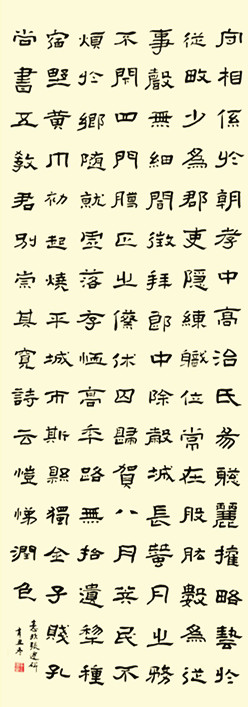 向相係於朝孝中高治氏易聰麗權略藝於
從畋少為郡吏隱練職位常在股肱數為從
事聲無細聞徵拜郎中除穀城長蠶月之務
不閉四門臘正之祭休囚歸賀八月算民不
煩於鄉隨就虛落存恤高年路無拾遺犁種
宿野黃巾初起燒平城市斯縣獨全子賤孔
尚書五教君別崇其寬詩云愷悌潤色
張遷碑